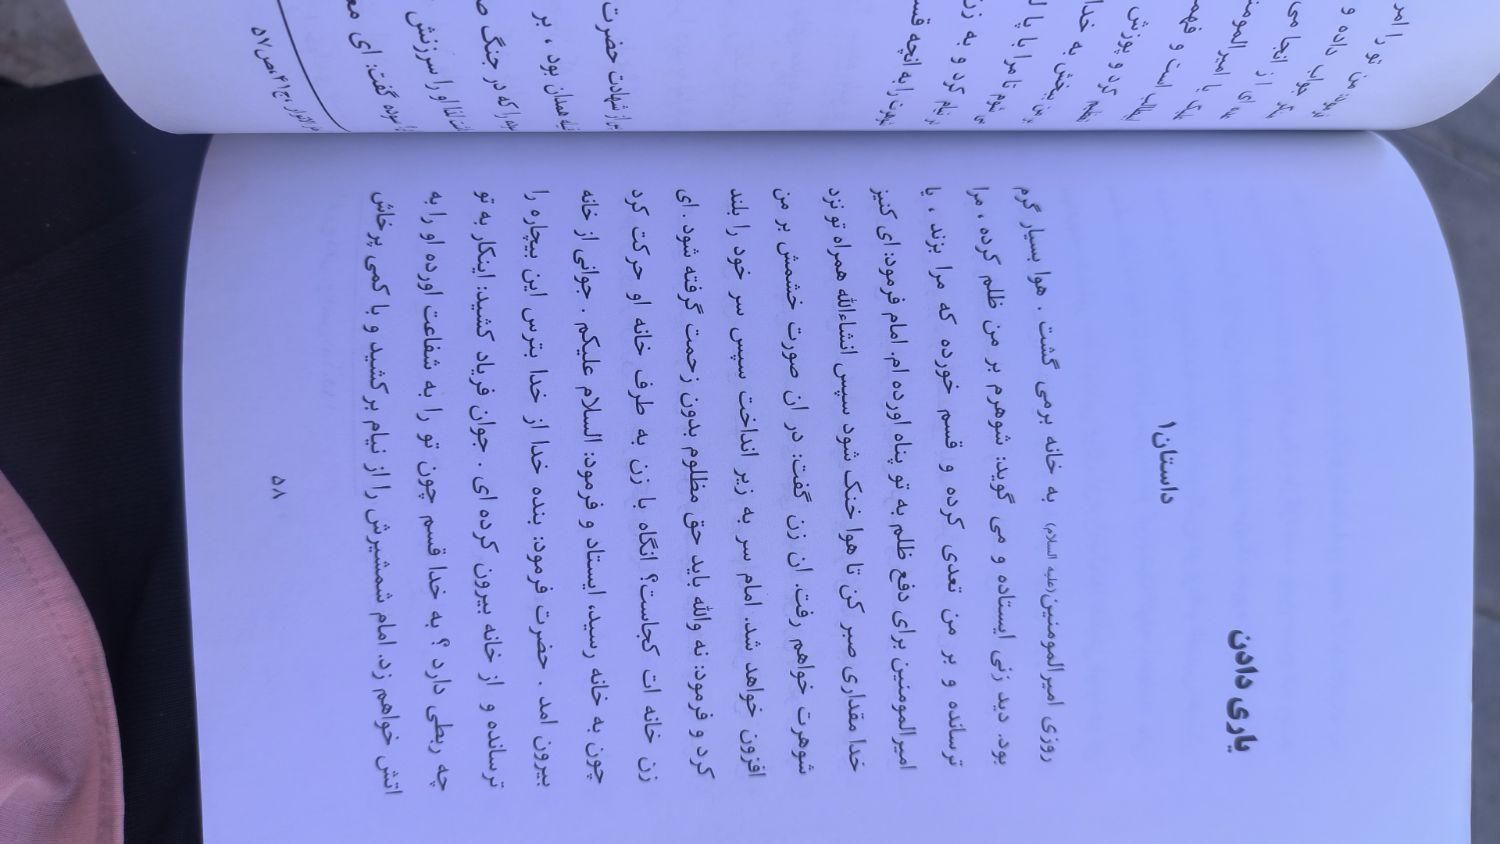 یاری دادن
داستان۱
روزی امیرالمومنین(علیه السلام) به خانه برمی گشت . هوا بسیار گرم
بود. دید زنی ایستاده و می گوید: شوهرم بر من ظلم کرده ، مرا
ترسانده و بر من تعدی کرده و قسم خورده که مرا بزند ، یا
امیرالمومنین برای دفع ظلم به تو پناه اورده ام. امام فرمود: ای کنیز
خدا مقداری صبر کن تا هوا خنک شود سپس انشاءالله همراه تو نزد
شوهرت خواهم رفت. ان زن گفت: در ان صورت خشمش بر من
افزون خواهد شد. امام سر به زیر انداخت سپس سر خود را بلند
کرد و فرمود: نه والله باید حق مظلوم بدون زحمت گرفته شود . ای
زن خانه ات کجاست؟ انگاه با زن به طرف خانه او حرکت کرد
چون به خانه رسید، ایستاد و فرمود: السلام علیکم . جوانی از خانه
بیرون امد . حضرت فرمود: بنده خدا از خدا بترس این بیچاره را
ترسانده و از خانه بیرون کرده ای . جوان فریاد کشید: اینکار به تو
چه ربطی دارد ؟ به خدا قسم چون تو را به شفاعت اورده او را به
اتش خواهم زد. امام شمشیرش را از نیام برکشید و با کمی پرخاش
۵۸
تو را امر
داده و
از انجا می
با امیرالمومنین
است و فهمید
کرد و پوزش
ببخش به خدا
تا مرا با پا
کرد و به زن
را به انچه
شهادت حضرت
همدان بود ، بر
را که در جنگ
او را سرزنش
گفت: ای
ج۴۱،ص۵۷